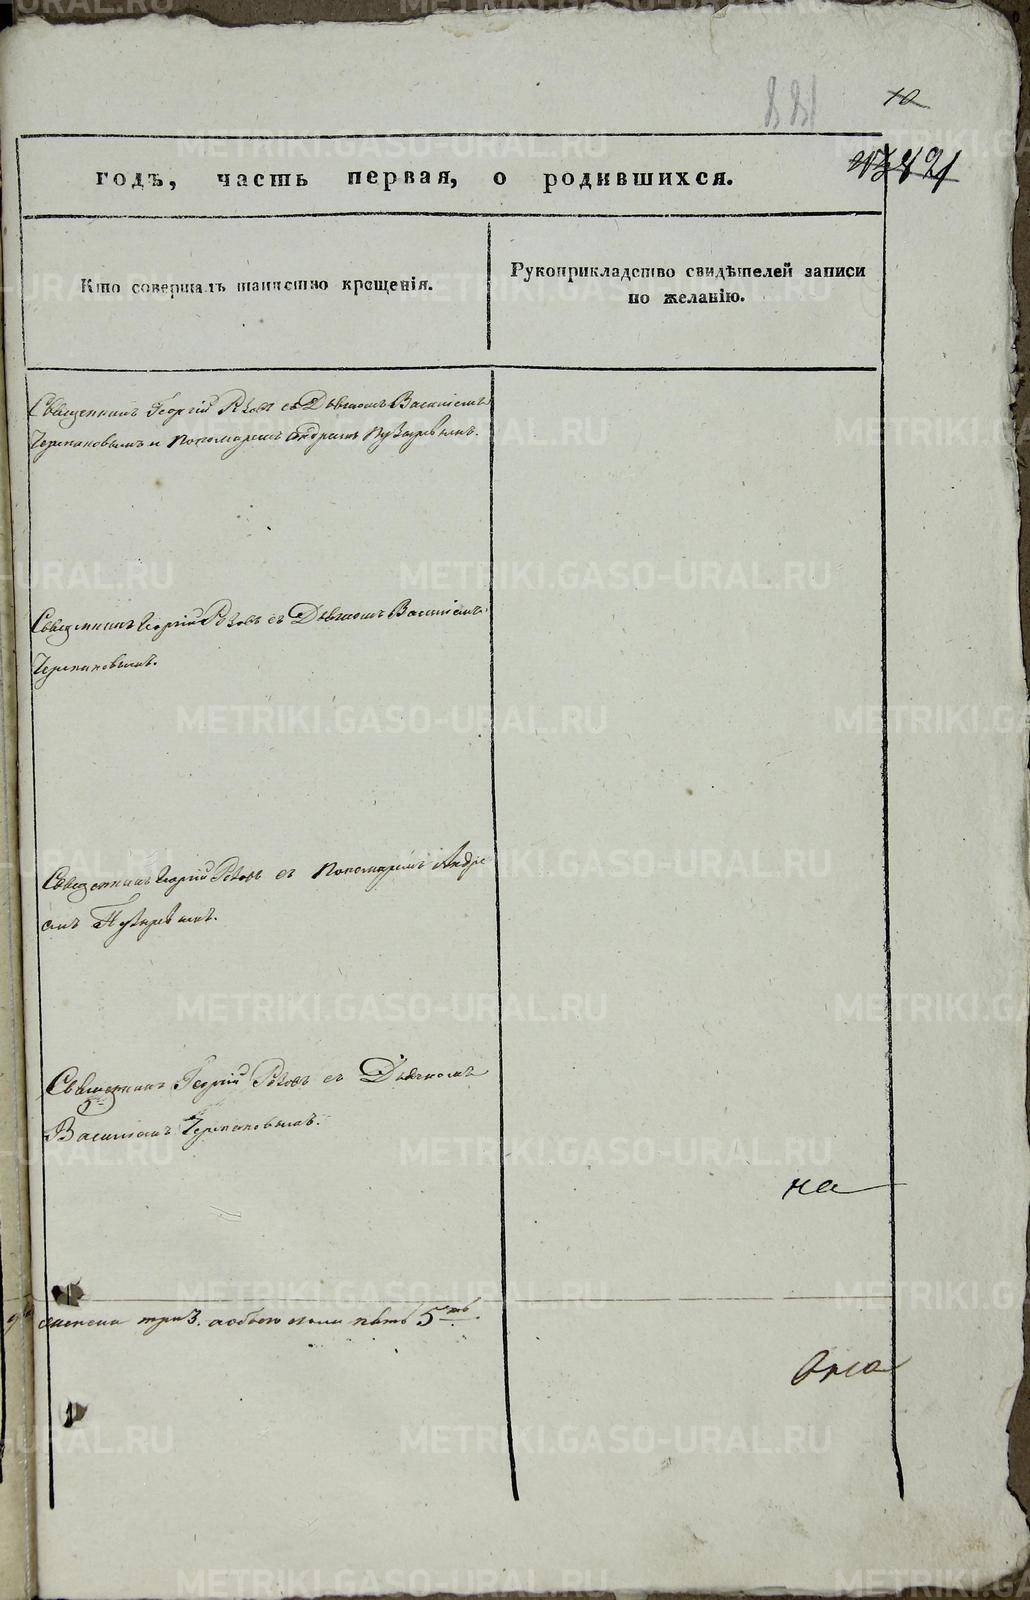 881
10
421
годъ, часть первая, о родившихся.
Кто совершалъ таинство крещенія.
Рукоприкладство свидѣтелей записи
по желанію.
Священникъ Георгій с Дьячкомъ Василіемъ
Черепановымъ и Пономаремъ Андреемъ Пузыревымъ.
Священникъ Георгій съ Дьячкомъ Василіемъ
Черепановымъ.
Священникъ Георгій съ Пономаремъ Андре
емъ Пузыревымъ.
Священникъ Георгій съ Дьячкомъ
Василіемъ Черепановымъ.
на
три 3. а обоего пола пять 5ть.
METRIKI.GASO-URAL.RU